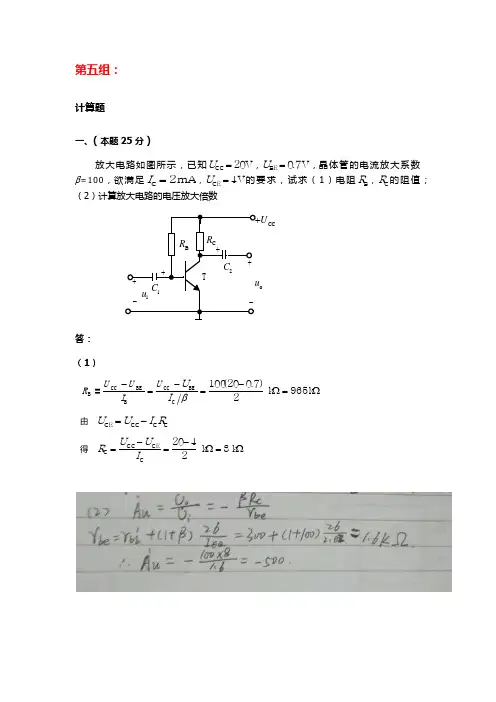 第五组：
计算题
一、（本题25分）
放大电路如图所示，已知U_CC=20V，U_BE=0.7V，晶体管的电流放大系数
β=100，欲满足I_C=2mA，U_CE=4V的要求，试求（1）电阻R_B，R_C的阻值；
（2）计算放大电路的电压放大倍数
+U_CC
R_B R_C
+
C_2
+ T +
+ C_1 u_o
u_i
− −
答：
（1）
R_B=(U_CC−U_BE)/I_B=(U_CC−U_BE)/(I_C/β)=100(20−0.7)/2 kΩ=965kΩ
由 U_CE=U_CC−I_C R_C
得 R_C=(U_CC−U_CE)/I_C=(20−4)/2 kΩ=8 kΩ
(2) Au=Uo/Ui=−βRc/rbe
rbe=rbb'+(1+β)26/IEQ=300+(1+100)26/2.02=1.6kΩ
∴ Au=−100×8/1.6=−500.